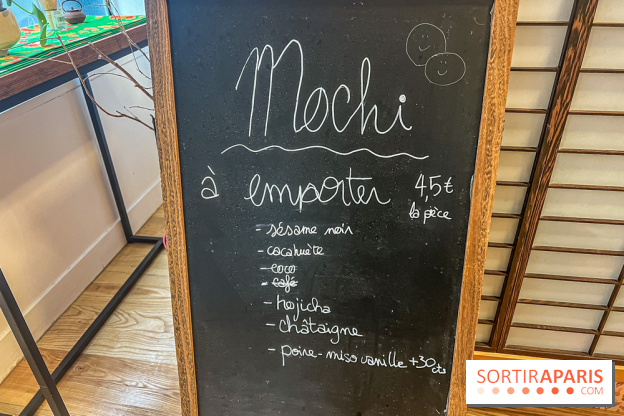 Mochi
à emporter 4,5€
la pièce
- sésame noir
- cacahuète
- coco
- café
- hojicha
- châtaigne
- poire-miso vanille +30cts
SORTIRAPARIS
.COM